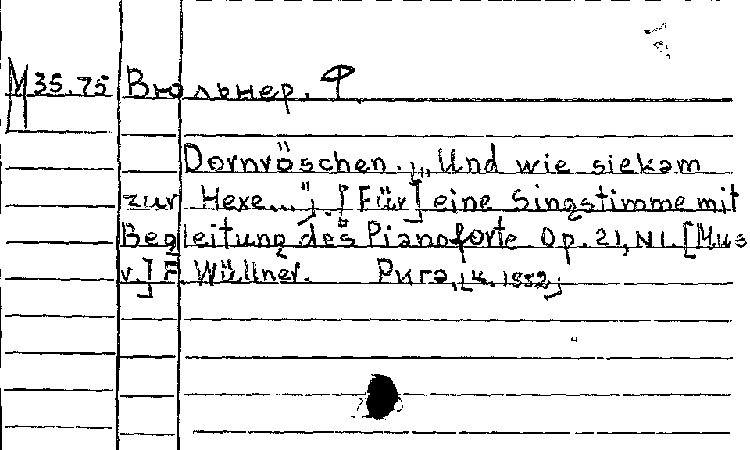 М 35.75 Вюльнер, Ф.
Dornröschen. „Und wie sie kam
zur Hexe...“. [Für] eine Singstimme mit
Begleitung des Pianoforte Op. 21, N1. [Mus
v.] F. Wüllner. Рига, [к. 1882]